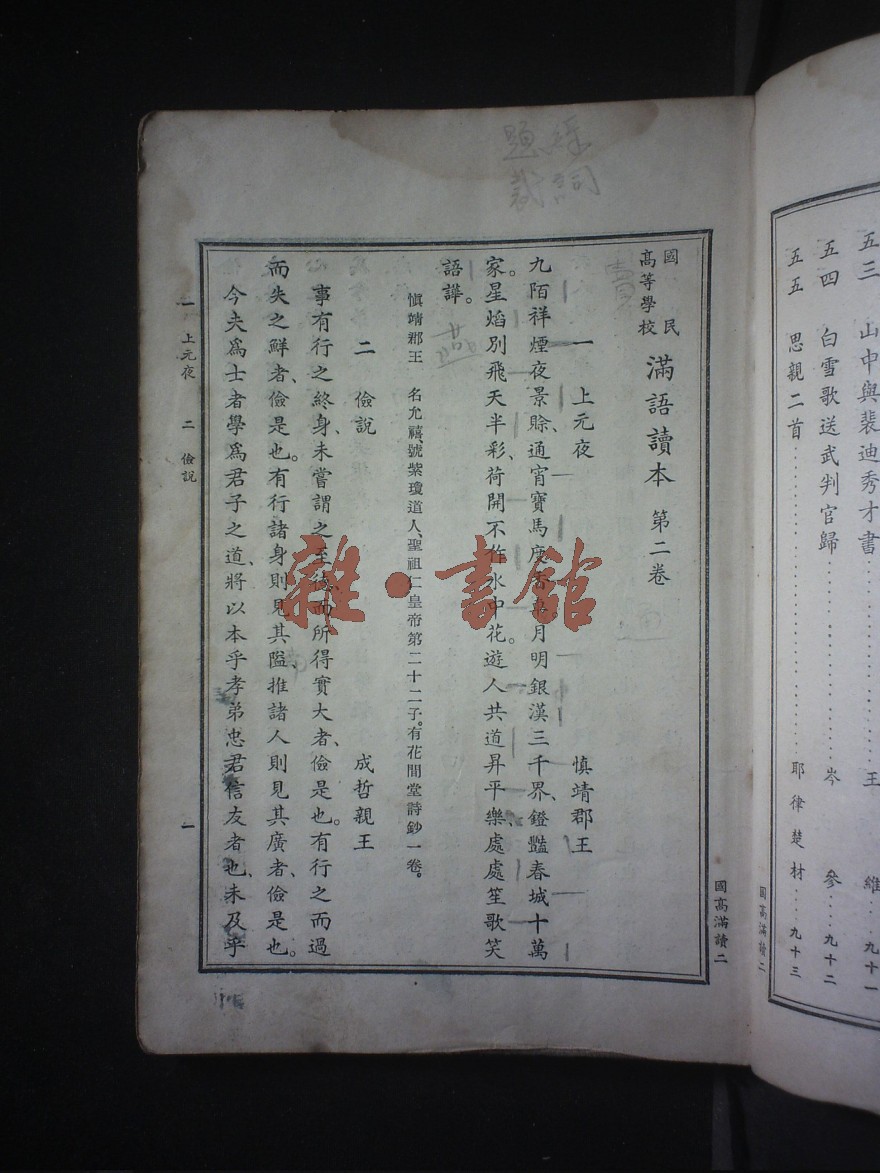 五三 山中與裴迪秀才書……………王維……九十一
五四 白雪歌送武判官歸……………岑參……九十二
五五 思親二首……………耶律楚材……九十三
國高滿讀二
國高滿讀二
國民高等學校 滿語讀本 第二卷
一 上元夜 慎靖郡王
九陌祥煙夜景賒、通宵寶馬度香車。月明銀漢三千界、鐙豔春城十萬
家。星焰別飛天半彩、荷開不作水中花。遊人共道昇平樂、處處笙歌笑
語譁。
慎靖郡王 名允禧、號紫瓊道人、聖祖仁皇帝第二十二子。有花間堂詩鈔一卷。
二 儉說 成哲親王
事有行之終身、未嘗謂之至德、而所得實大者、儉是也。有行之而過
而失之鮮者、儉是也。有行諸身則見其隘、推諸人則見其廣者、儉是也。
今夫爲士者學爲君子之道、將以本乎孝弟忠君信友者也、未及乎
一 上元夜 二 儉說
一
雜·書館